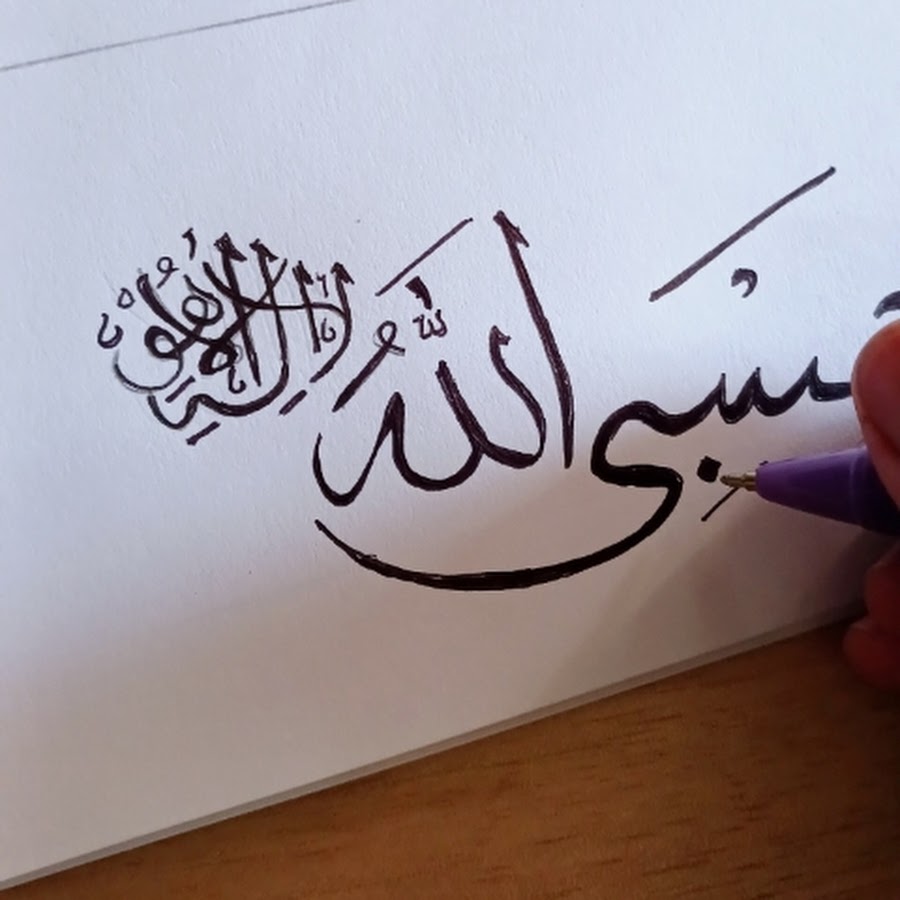 حَسْبِىَ اللَّهُ لَا إِلَهَ إِلَّا هُوَ